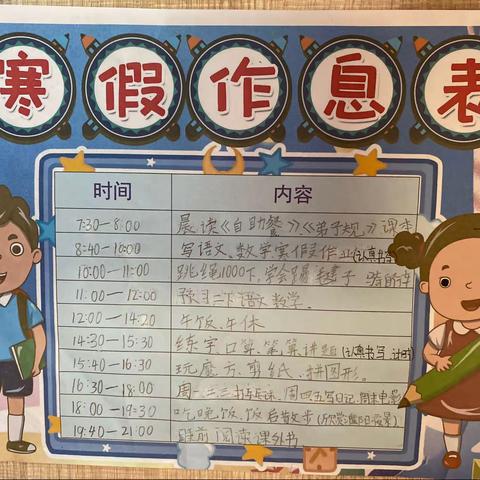 寒假作息表
时间 内容
7:30—8:00 晨读《自助餐》《弟子规》课本
8:40—10:00 写语文、数学寒假作业(认真书写)
10:00—11:00 跳绳1000下,学会踢毽子
11:00—12:00 预习二下语文数学。
12:00—14:20 午饭、午休
14:30—15:30 练字口算、笔算讲题(认真书写 计时)
15:40—16:30 玩魔方、剪纸、拼图形。
16:30—18:00 周一三 周四五写日记,周末电影
18:00—19:30 吃晚饭,饭后散步
19:40—21:00 睡前阅读课外书